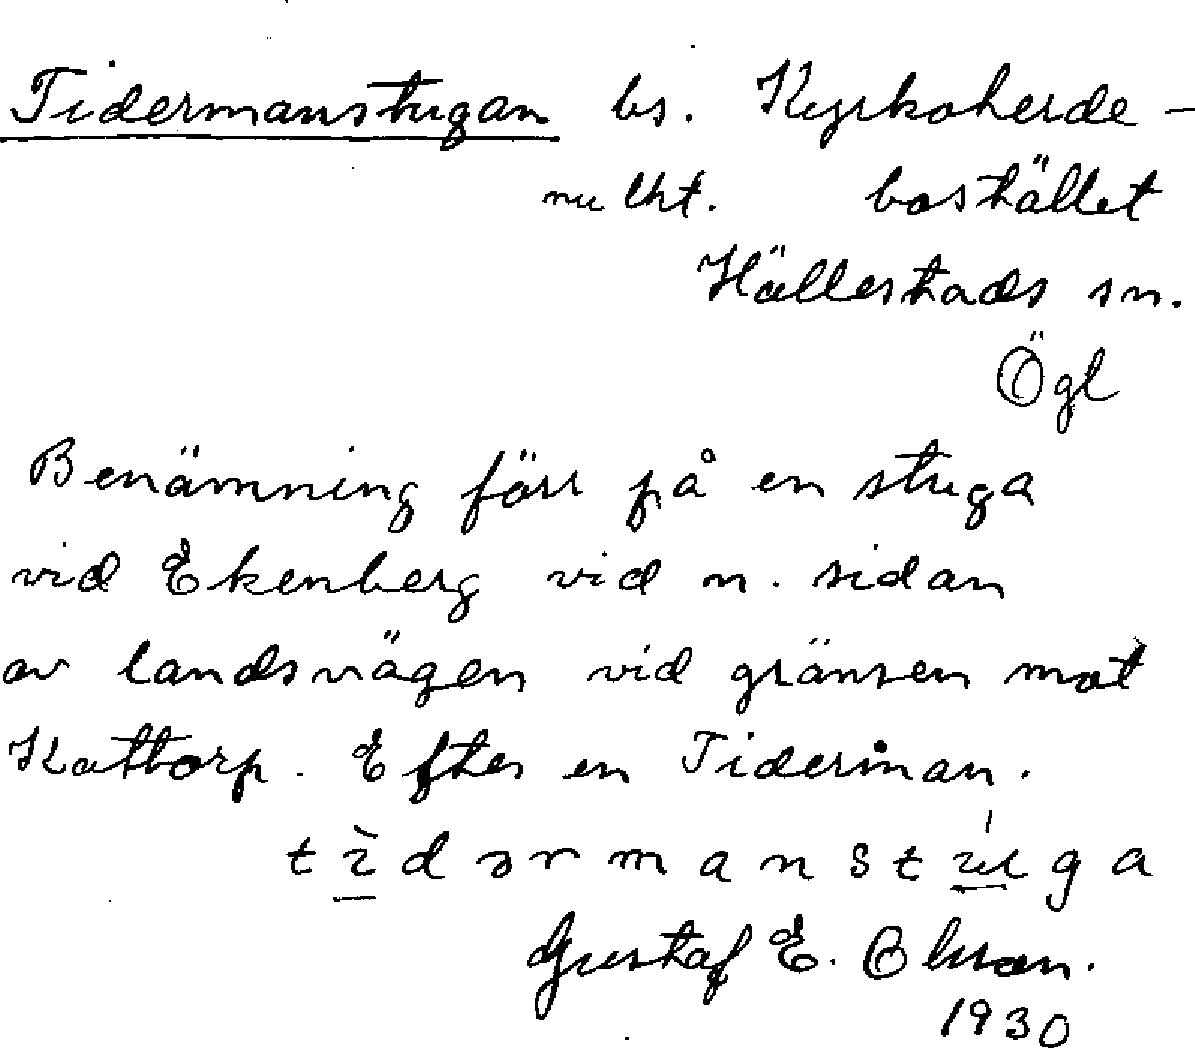 Tidermanstugan bs. Kyrkoherde-
nu lht. bostället
Hällestads sn.
Ögl
Benämning förr på en stuga
vid Ekenberg vid n. sidan
av landsvägen vid gränsen mot
Kattorp. Efter en Tiderman.
tìdərmanstúga
Gustaf E. Olsson.
1930